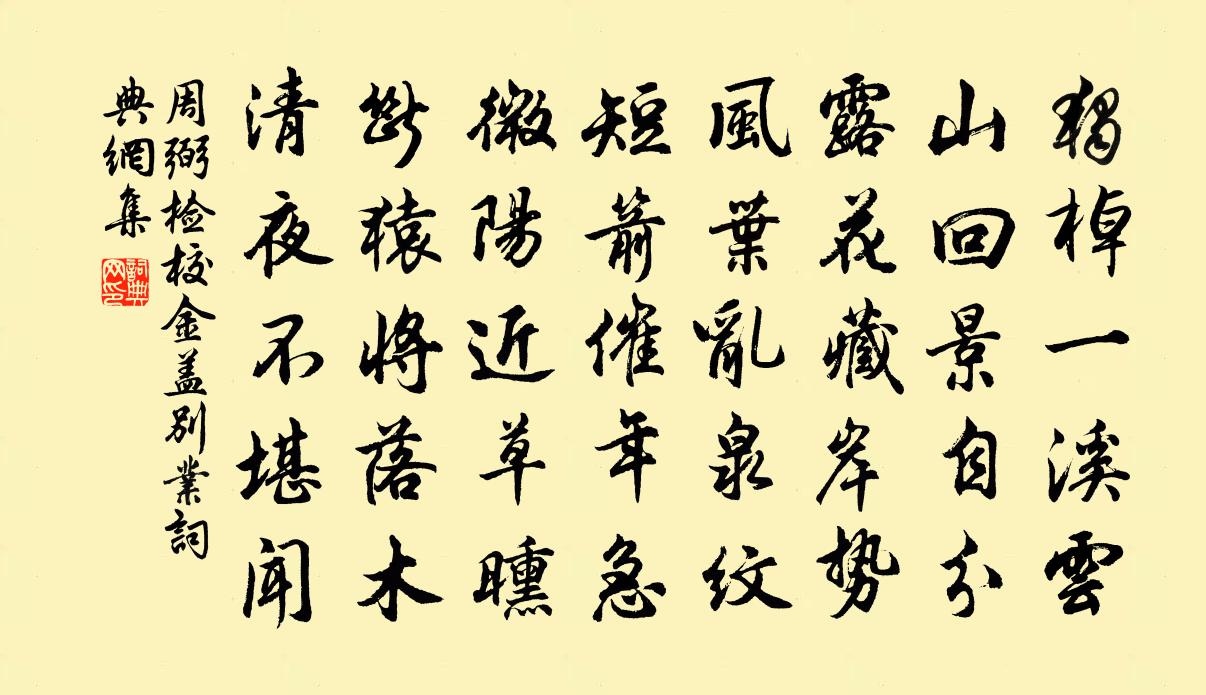 獨棹一溪雲
山回景自分
露花藏岸勢
風葉亂泉紋
短箭催年急
微陽近草曛
斷猿將落木
清夜不堪聞
周弼检校金盖别業詞
典網集
詞典
网印